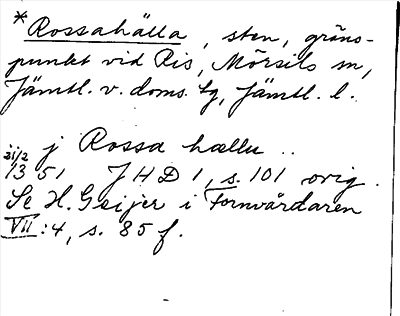 *Rossahälla, sten, gräns-
punkt vid Ris, Mörsils sn,
Jämtl. v. doms. tg, Jämtl. l.
j Rossa hællu ..
21/2
1351 JHD 1, s. 101 orig.
Se H. Geijer i Fornvårdaren
VII:4, s. 85 f.